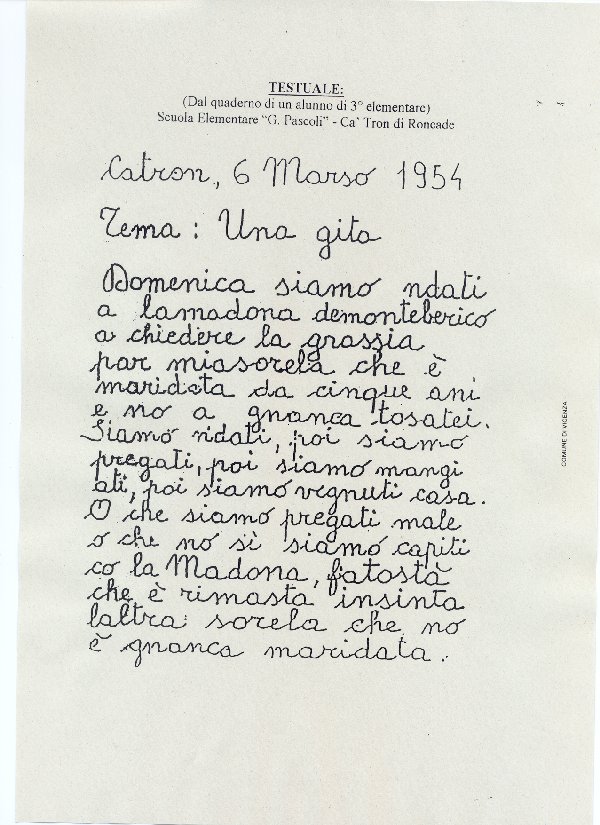 TESTUALE:
(Dal quaderno di un alunno di 3° elementare)
Scuola Elementare "G. Pascoli" - Ca' Tron di Roncade
Catron, 6 Marso 1954
Tema : Una gita
Domenica siamo ndati
a lamadona demonteberico
a chiedere la grassia
par miasorela che è
maridata da cinque ani
e no a gnanca tosatei.
Siamo ndati, poi siamo
pregati, poi siamo mangi
ati, poi siamo vegnuti casa.
O che siamo pregati male
o che no si siamo capiti
co la Madona, fatostà
che è rimasta insinta
laltra sorela che no
è gnanca maridata.
COMUNE DI VICENZA